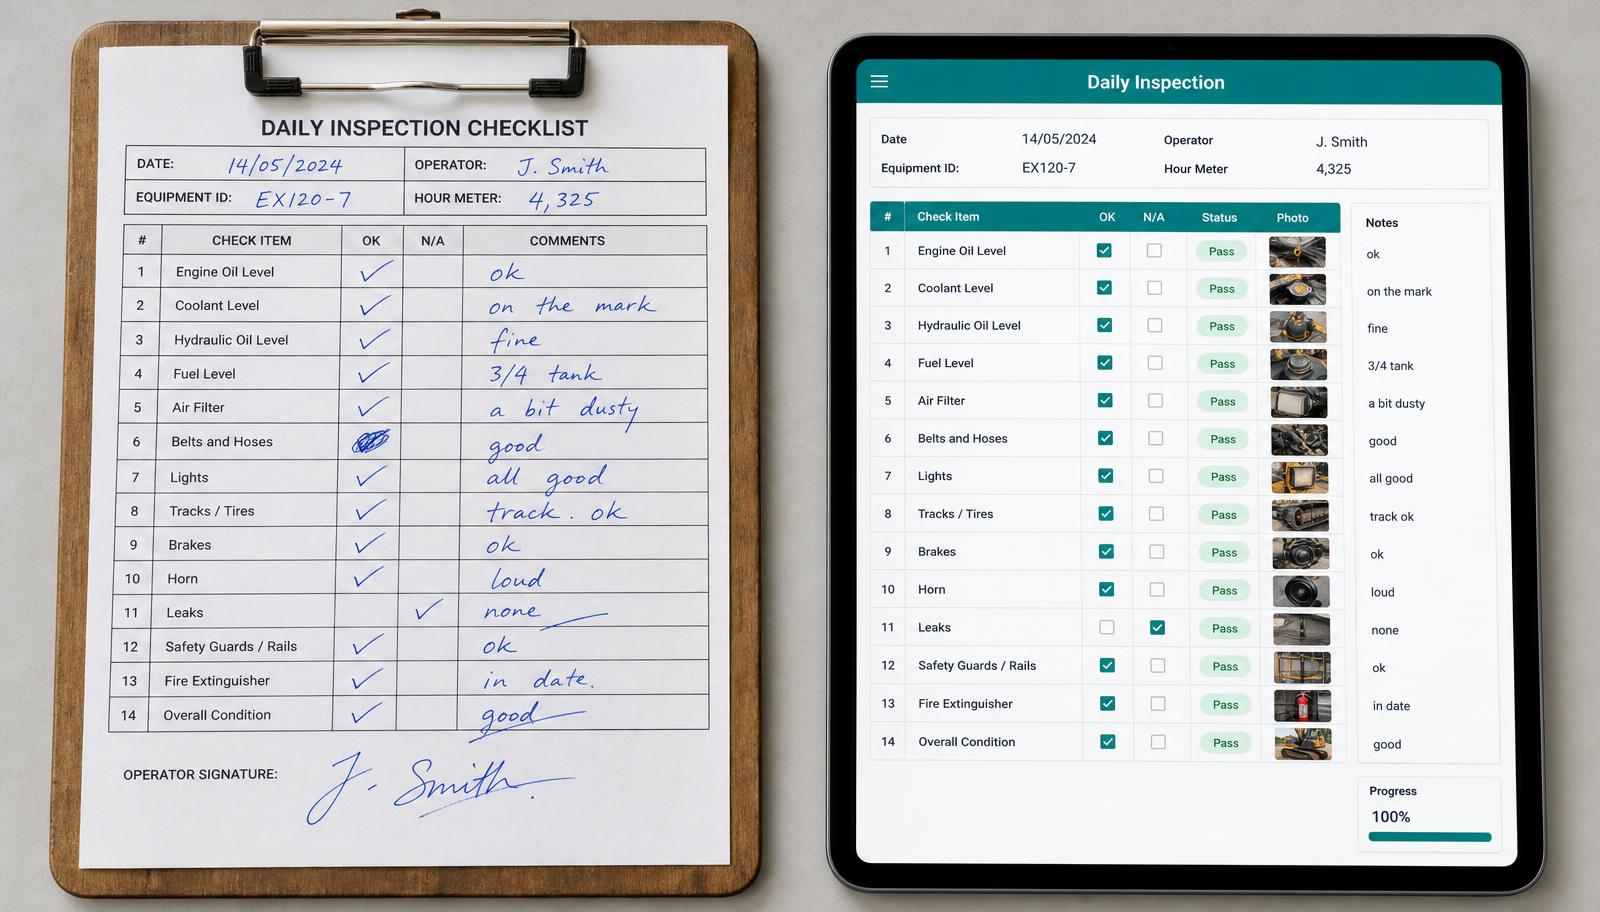 DAILY INSPECTION CHECKLIST
DATE: 14/05/2024 OPERATOR: J. Smith
EQUIPMENT ID: EX120-7 HOUR METER: 4,325
# CHECK ITEM OK N/A COMMENTS
1 Engine Oil Level ✓ ok
2 Coolant Level ✓ on the mark
3 Hydraulic Oil Level ✓ fine
4 Fuel Level ✓ 3/4 tank
5 Air Filter ✓ a bit dusty
6 Belts and Hoses good
7 Lights ✓ all good
8 Tracks / Tires ✓ track. ok
9 Brakes ✓ ok
10 Horn ✓ loud
11 Leaks ✓ none
12 Safety Guards / Rails ✓ ok
13 Fire Extinguisher ✓ in date.
14 Overall Condition ✓ good
OPERATOR SIGNATURE: J. Smith.
Daily Inspection
Date 14/05/2024 Operator J. Smith
Equipment ID: EX120-7 Hour Meter 4,325
# Check Item OK N/A Status Photo Notes
1 Engine Oil Level ✓ Pass ok
2 Coolant Level ✓ Pass on the mark
3 Hydraulic Oil Level ✓ Pass fine
4 Fuel Level ✓ Pass 3/4 tank
5 Air Filter ✓ Pass a bit dusty
6 Belts and Hoses ✓ Pass good
7 Lights ✓ Pass all good
8 Tracks / Tires ✓ Pass track ok
9 Brakes ✓ Pass ok
10 Horn ✓ Pass loud
11 Leaks ✓ Pass none
12 Safety Guards / Rails ✓ Pass ok
13 Fire Extinguisher ✓ Pass in date
14 Overall Condition ✓ Pass good
Progress
100%